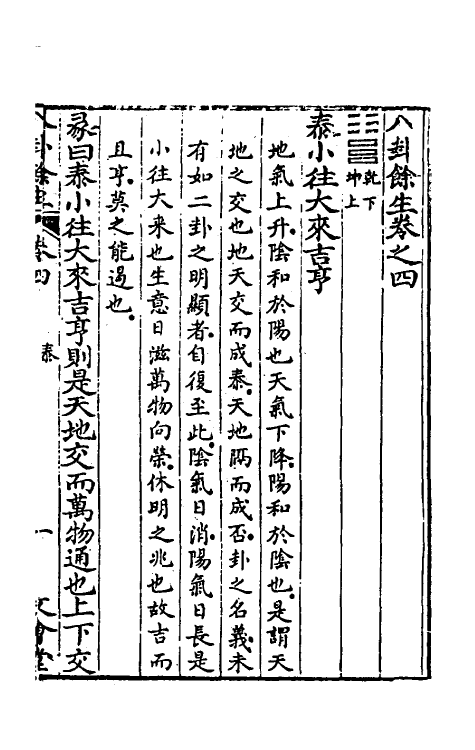 八卦餘生卷之四
䷊ 乾下
坤上
泰小往大來吉亨
地氣上升陰和於陽也天氣下降陽和於陰也是謂天
地之交也地天交而成泰天地隔而成否卦之名義未
有如二卦之明顯者自復至此陰氣日消陽氣日長是
小往大來也生意日滋萬物向榮休明之兆也故吉而
且亨莫之能遏也
彖曰泰小往大來吉亨則是天地交而萬物通也上下交
八卦餘生 卷四 泰 一 文會堂